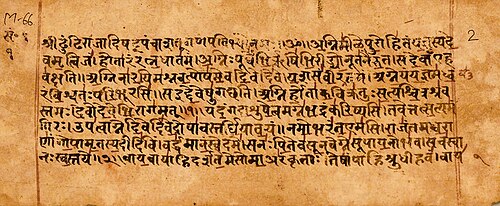 M-66
2
श्रीढुंढिराजादिषट्पंचाशद्गणपतिभ्योनमः॥ॐ॥अग्निमीळेपुरोहितंयज्ञस्यदे
वमृत्विजं।होतारंरत्नधातमं॥अग्निःपूर्वेभिर्ऋषिभिरीड्योनूतनैरुत।सदेवाँएह
वक्षति॥अग्निनारयिमश्नवत्पोषमेवदिवेदिवे।यशसंवीरवत्तमं॥अग्नेयंयज्ञमध्व
रंविश्वतःपरिभूरसि।सइद्देवेषुगच्छति॥अग्निर्होताकविक्रतुःसत्यश्चित्रश्रव
स्तमः।देवोदेवेभिरागमत्॥१॥यदंगदाशुषेत्वमग्नेभद्रंकरिष्यसि।तवेत्तत्सत्यमं
गिरः॥उपत्वाग्नेदिवेदिवेदोषावस्तर्धियावयं॥नमोभरंतएमसि॥राजंतमध्वरा
णांगोपामृतस्यदीदिविं।वर्धमानंस्वेदमे॥सनःपितेवसूनवेग्नेसूपायनोभव।सचस्वा
नःस्वस्तये॥२॥वायवायाहिदर्शतेमेसोमाअरंकृताः।तेषांपाहिश्रुधीहवं॥वाय